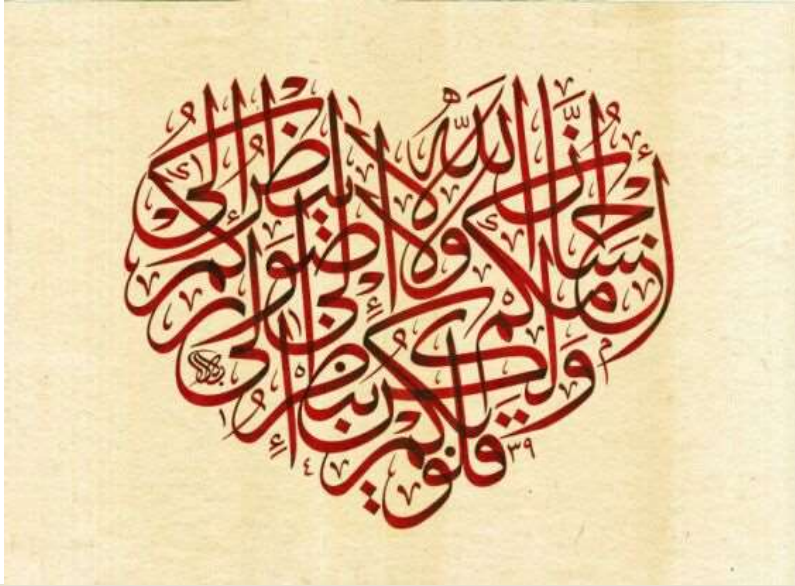 إن الله لا ينظر إلى
أجسامكم ولا إلى صوركم
ولكن ينظر إلى
قلوبكم
٣٩